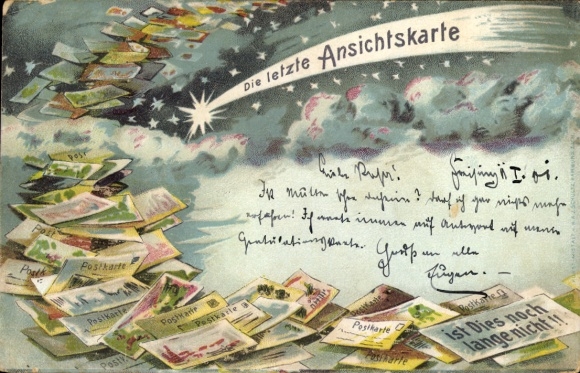 Die letzte Ansichtskarte
Freising II I. 01.
Ist Mutter schon daheim? darf ich gar nichts mehr
erfahren! Ich warte immer auf Antwort auf meine
Gratulationskarte. Gruß an alle
Eugen.
Post
Postkarte
Postkarte
Postkarte
Postkarte
Postkarte
Postkarte
Postkarte
Postkarte
Postkarte
Postkarte
ist Dies noch
lange nicht!!